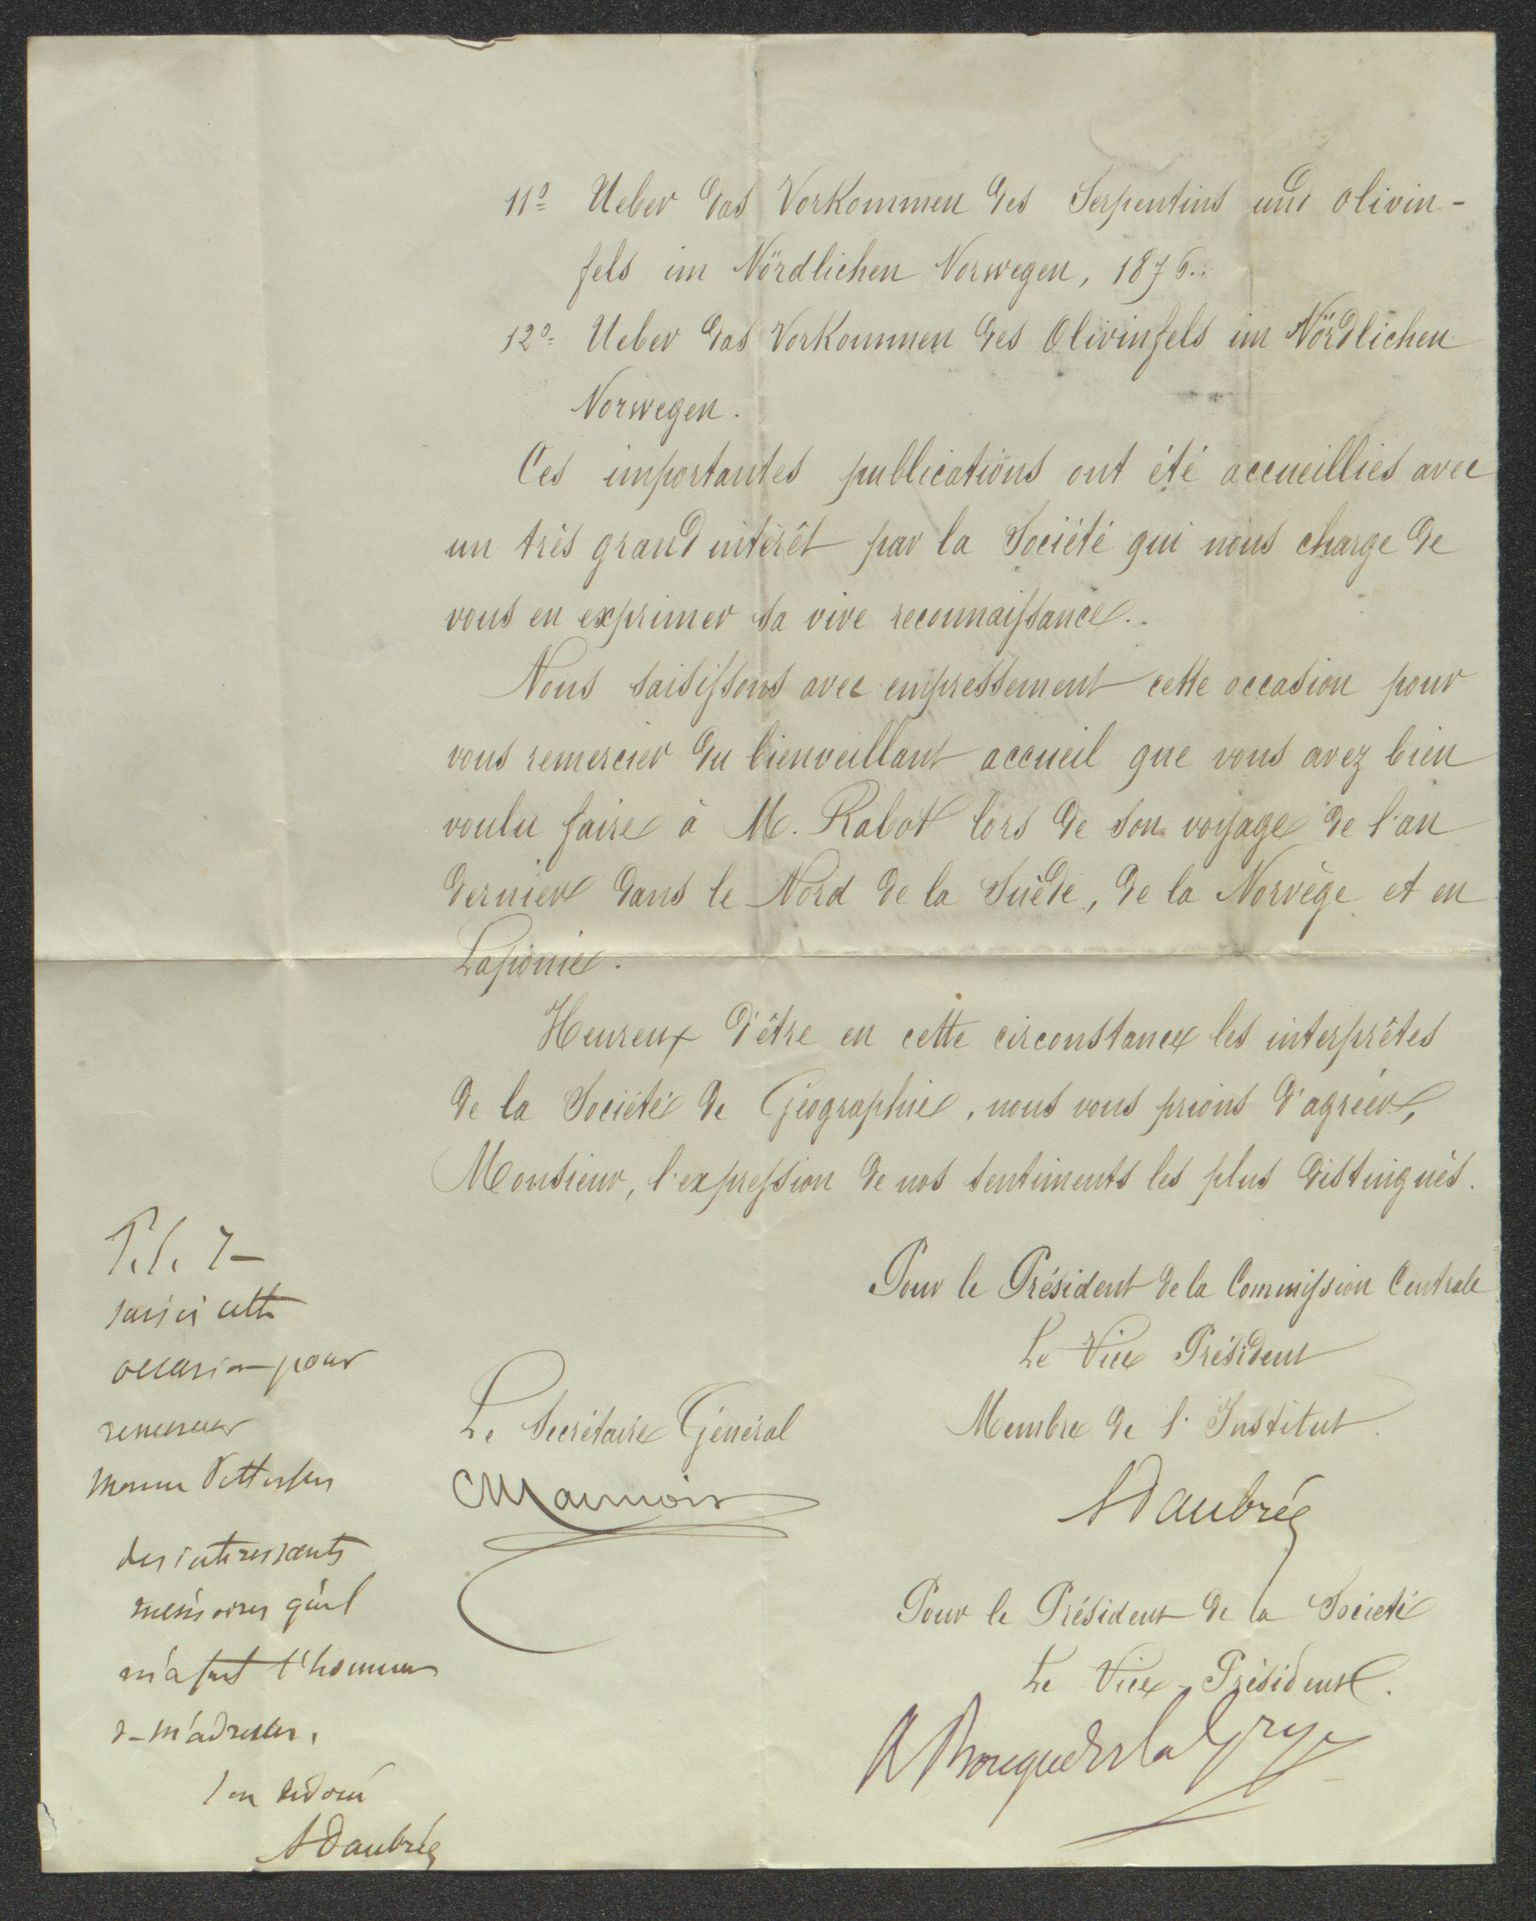 11º Ueber das Vorkommen des Serpentins und Olivin-
fels im Nördlichen Norwegen, 1876.
12º Ueber das Vorkommen des Olivinfels im Nördlichen
Norwegen.
Ces importantes publications ont été accueillies avec
un très grand intérêt par la Société qui nous charge de
vous en exprimer sa vive reconnaissance.
Nous saisissons avec empressement cette occasion pour
vous remercier du bienveillant accueil que vous avez bien
voulu faire à M. Rabot lors de son voyage de l'an
dernier dans le Nord de la Suède, de la Norvège et en
Laponie.
Heureux d'être en cette circonstance les interprêtes
de la Société de Géographie, nous vous prions d'agréer,
Monsieur, l'expression de nos sentiments les plus distingués.
Pour le Président de la Commission Centrale
Le Vice Président
Membre de l'Institut.
ADaubrée
Le Secrétaire Général
CMaunoir
Pour le Président de la Société
Le Vice-Président.
A Bouquet de la Grye
P.S. J
saisis cette
occasion pour
remercier
Pettersen
des intéressants
mémoires qu'il
m'a fait l'honneur
de m'adresser.
Son dévoué
ADaubrée